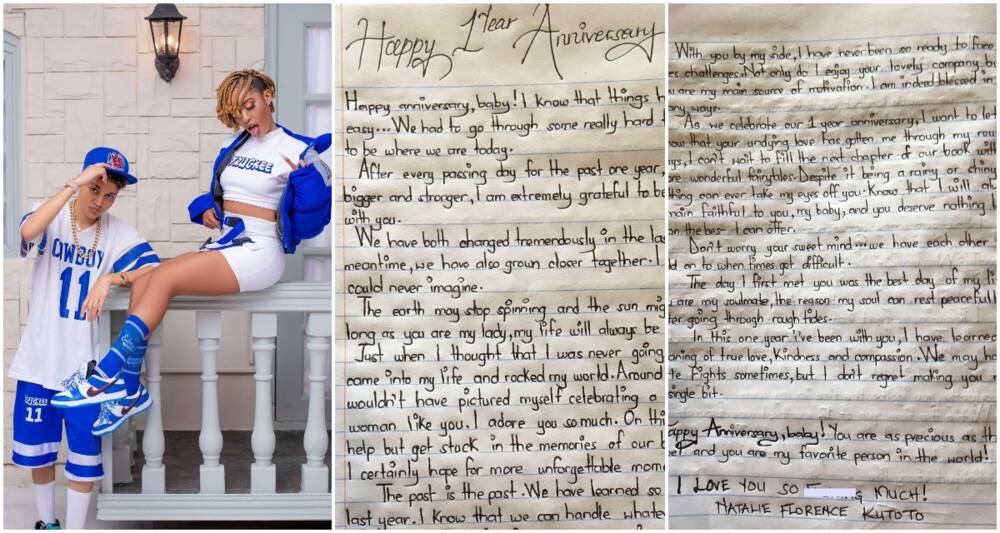 11
11
Happy 1 Year Anniversary
Happy anniversary, baby! I know that things h
easy... We had to go through some really hard t
to be where we are today.
After every passing day for the past one year,
bigger and stronger, I am extremely grateful to be
with you.
We have both changed tremendously in the las
meantime, we have also grown closer together. I
could never imagine.
The earth may stop spinning and the sun mig
long as you are my lady, my life will always be
Just when I thought that I was never going
came into my life and rocked my world. Around
wouldn't have pictured myself celebrating a
woman like you. I adore you so much. On this
help but get stuck in the memories of our t
I certainly hope for more unforgettable mom
The past is the past. We have learned so
last year. I know that we can handle whate
With you by my side, I have never been so ready to face
es challenges. Not only do I enjoy your lovely company bu
u are my main source of motivation. I am indeed blessed in
any ways.
As we celebrate our 1 year anniversary, I want to let
ow that your undying love has gotten me through my rou
ays, I can't wait to fill the next chapter of our book with
re wonderful fairytales. Despite it being a rainy or shiny
thing can ever take my eyes off you. Know that I will al
main faithful to you, my baby, and you deserve nothing l
n the bes- I can offer.
Don't worry your sweet mind... we have each other
ld on to when times get difficult.
The day I first met you was the best day of my li
u are my soulmate, the reason my soul can rest peacefull
ter going through rough tides.
In this one year i've been with you, I have learned
aning of true love, kindness and compassion. We may ha
te fights sometimes, but I don't regret making you
single bit.
appy Anniversary, baby! You are as precious as th
el and you are my favorite person in the world!
I LOVE YOU SO MUCH!
NATALIE FLORENCE KUTOTO